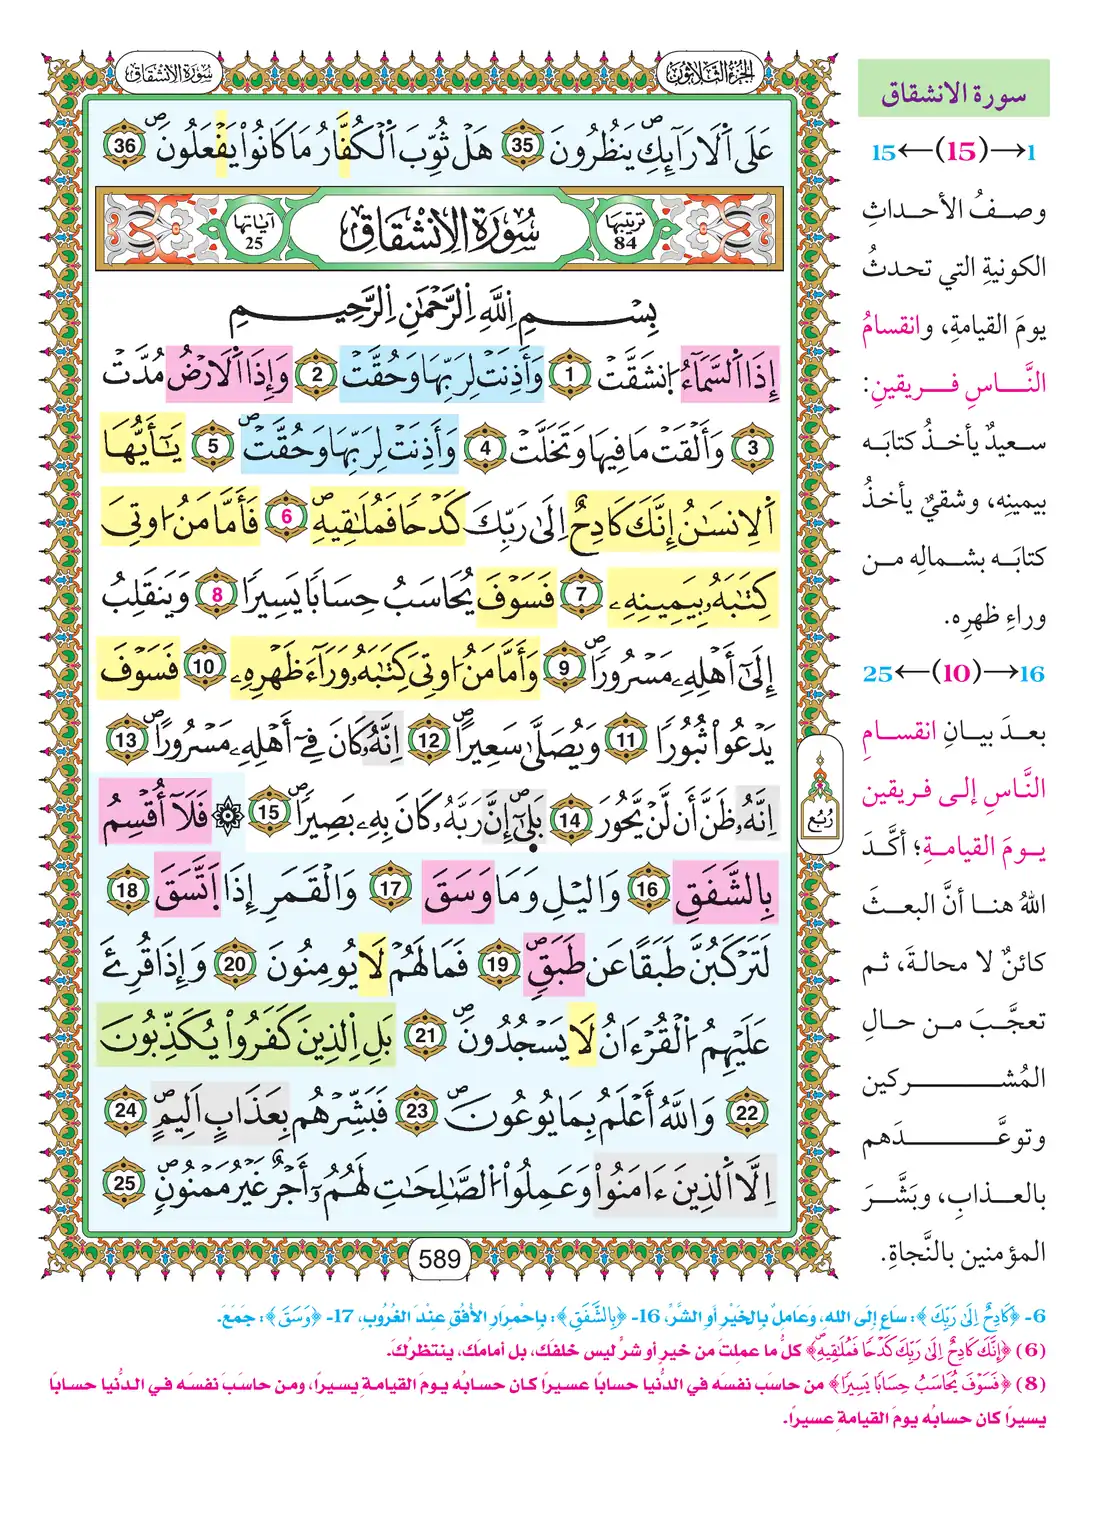 الجزء الثلاثون
سورة الانشقاق
عَلَى اَلَارَآئِكِ يَنظُرُونَۖ 35 هَلْ ثُوِّبَ اَلْكُفَّارُ مَا كَانُواْ يَفْعَلُونَۖ 36
ترتيبها 84
سُورَةُ الِانْشِقَاقِ
آياتها 25
بِسْمِ اِللَّهِ اِلرَّحْمَٰنِ اِلرَّحِيمِ
إِذَا اَلسَّمَآءُ اُنشَقَّتْ 1 وَأَذِنَتْ لِرَبِّهَا وَحُقَّتْ 2 وَإِذَا اَلَارْضُ مُدَّتْ
3 وَأَلْقَتْ مَا فِيهَا وَتَخَلَّتْ 4 وَأَذِنَتْ لِرَبِّهَا وَحُقَّتْۖ 5 يَٰٓأَيُّهَا
اَلِانسَٰنُ إِنَّكَ كَادِحٌ اِلَىٰ رَبِّكَ كَدْحًا فَمُلَٰقِيهِۖ 6 فَأَمَّا مَنُ اوتِىَ
كِتَٰبَهُۥ بِيَمِينِهِۦ 7 فَسَوْفَ يُحَاسَبُ حِسَابًا يَسِيرًا 8 وَيَنقَلِبُ
إِلَىٰٓ أَهْلِهِۦ مَسْرُورًاۖ 9 وَأَمَّا مَنُ اوتِىَ كِتَٰبَهُۥ وَرَآءَ ظَهْرِهِۦ 10 فَسَوْفَ
يَدْعُواْ ثُبُورًا 11 وَيُصَلَّىٰ سَعِيرًاۖ 12 اِنَّهُۥ كَانَ فِىٓ أَهْلِهِۦ مَسْرُورًاۖ 13
اِنَّهُۥ ظَنَّ أَن لَّنْ يَّحُورَ 14 بَلَىٰٓۖ إِنَّ رَبَّهُۥ كَانَ بِهِۦ بَصِيرًاۖ 15 ۞ فَلَآ أُقْسِمُ
رُبُع
بِالشَّفَقِ 16 وَاليْلِ وَمَا وَسَقَ 17 وَالْقَمَرِ إِذَا اَتَّسَقَ 18
لَتَرْكَبُنَّ طَبَقًا عَن طَبَقٍۖ 19 فَمَا لَهُمْ لَا يُومِنُونَ 20 وَإِذَا قُرِئَ
عَلَيْهِمُ اُلْقُرْءَانُ لَا يَسْجُدُونَۖ 21 بَلِ اِلذِينَ كَفَرُواْ يُكَذِّبُونَ
22 وَاللَّهُ أَعْلَمُ بِمَا يُوعُونَۖ 23 فَبَشِّرْهُم بِعَذَابٍ اَلِيمٍۖ 24
اِلَّا اَلذِينَ ءَامَنُواْ وَعَمِلُواْ اُلصَّٰلِحَٰتِ لَهُمُۥٓ أَجْرٌ غَيْرُ مَمْنُونٍۖ 25
589
سورة الانشقاق
1→(15)←15
وصفُ الأحداثِ
الكونيةِ التي تحدثُ
يومَ القيامةِ، وانقسامُ
النَّاسِ فريقينِ:
سعيدٌ يأخذُ كتابَه
بيمينِه، وشقيٌ يأخذُ
كتابَه بشمالِه من
وراءِ ظهرِه.
16→(10)←25
بعدَ بيانِ انقسامِ
النَّاسِ إلى فريقين
يومَ القيامةِ؛ أكَّدَ
اللهُ هنا أنَّ البعثَ
كائنٌ لا محالةَ، ثم
تعجَّبَ من حالِ
المُشركين
وتوعَّدَهم
بالعذابِ، وبَشَّرَ
المؤمنين بالنَّجاةِ.
6- ﴿كَادِحٌ اِلَىٰ رَبِّكَ﴾: سَاعٍ إلَى اللهِ، وَعَامِلٌ بِالخَيْرِ أوِ الشَّرِّ، 16- ﴿بِالشَّفَقِ﴾: بِاحْمِرَارِ الأُفُقِ عِنْدَ الغُرُوبِ، 17- ﴿وَسَقَ﴾: جَمَعَ.
(6) ﴿إِنَّكَ كَادِحٌ اِلَىٰ رَبِّكَ كَدْحًا فَمُلَٰقِيهِۖ﴾ كلُّ ما عملتَ من خيرٍ أو شرٍّ ليس خلفَك، بل أمامَك، ينتظرُك.
(8) ﴿فَسَوْفَ يُحَاسَبُ حِسَابًا يَسِيرًا﴾ من حاسَب نفسَه في الدُّنيا حسابًا عسيرًا كان حسابُه يومَ القيامةِ يسيرًا، ومن حاسَبَ نفسَه في الدُّنيا حسابًا
يسيرًا كان حسابُه يومَ القيامةِ عسيرًا.